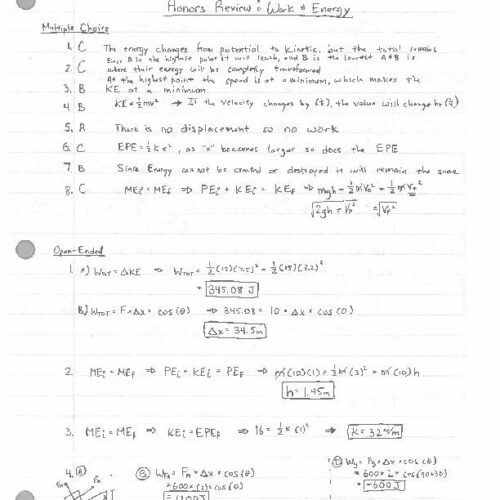 Honors Review: Work & Energy
Multiple Choice
1. C The energy changes from potential to kinetic, but the total remains
Since A is the highest point it will reach, and B is the lowest A&B is
2. C where their energy will be completely transformed
At the highest point the speed is at a minimum, which makes the
3. B KE at a minimum.
4. B KE = ½mv² → If the velocity changes by (⅓), the value will change by
5. A There is no displacement so no work
6. C EPE = ½Kx², as "x" becomes larger so does the EPE
7. B Since Energy cannot be created or destroyed it will remain the same
8. C MEi = MEf ⇒ PEi + KEi = KEf ⇒ mgh + ½mV₀² = ½mVf²
√2gh + V₀² = √Vf²
Open-Ended
1. A) WTOT = ΔKE ⇒ WTOT = ½(15)(7.5)² - ½(15)(3.2)²
= 345.08 J
B) WTOT = F × Δx × cos(θ) ⇒ 345.08 = 10 × Δx × cos(0)
Δx = 34.5m
2. MEi = MEf ⇒ PEi + KEi = PEf ⇒ m(10)(1) + ½m(3)² = m(10)h
h = 1.45m
3. MEi = MEf ⇒ KEi = EPEf ⇒ 16 = ½K(1)² ⇒ K = 32 N/m
4. A B WFA = FA × Δx × cos(θ) D Wg = Fg × Δx × cos(θ)
= 600 × 2 × cos(90+30)
= -600J